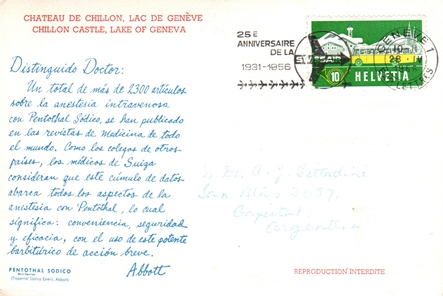 CHATEAU DE CHILLON, LAC DE GENÈVE
CHILLON CASTLE, LAKE OF GENEVA
Distinguido Doctor:
Un total de más de 2300 artículos
sobre la anestesia intravenosa
con Pentothal Sódico, se han publicado
en las revistas de Medicina de todo
el mundo. Como los colegas de otros
países, los médicos de Suiza
consideran que este cúmulo de datos
abarca todos los aspectos de la
anestesia con Pentothal, lo cual
significa: conveniencia, seguridad
y eficacia, con el uso de este potente
barbitúrico de acción breve.
Abbott
PENTOTHAL SODICO
(Tiopental Sódico Estéril, Abbott)
25E
ANNIVERSAIRE
DE LA
1931-1956
10
HELVETIA
GENÈVE 1
10
28
San Blas
Capital
Argentina
REPRODUCTION INTERDITE